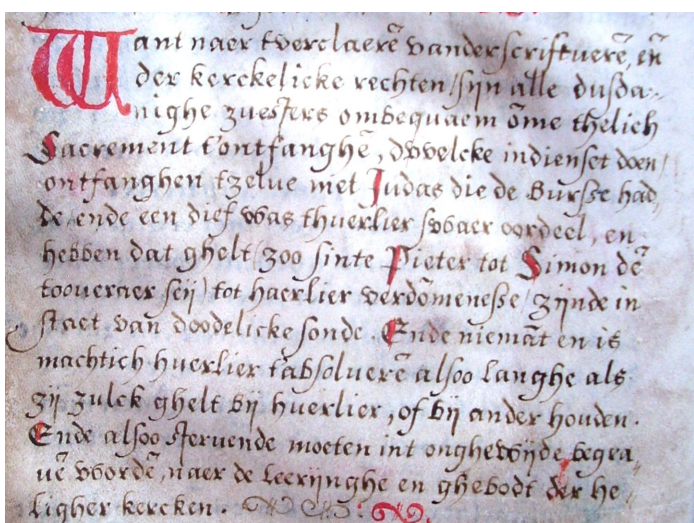 Want naer tverclaerē vander scriftuerē, eñ
der kerckelicke rechten/sijn alle dusda-
nighe zuesters ombequaem ōme thelich
Sacrement t'ontfanghē, dwelcke indienset doen/
ontfanghen tzelve met Judas die de Bursse had,
de, ende een dief was thuerlier swaer oordeel, en
hebben dat ghelt (zoo sinte Pieter tot Simon dē
toouveraer seij) tot haerlier verdōmenesse/zijnde in
staet van doodelicke sonde. Ende niemāt en is
machtich huerlier t'absoluerē alsoo langhe als
zij zulck ghelt bij huerlier, of bij ander houden.
Ende alsoo stervende moeten int onghewijde begra-
uē wordē, naer de leerijnghe en ghebodt der he-
ligher kercken.